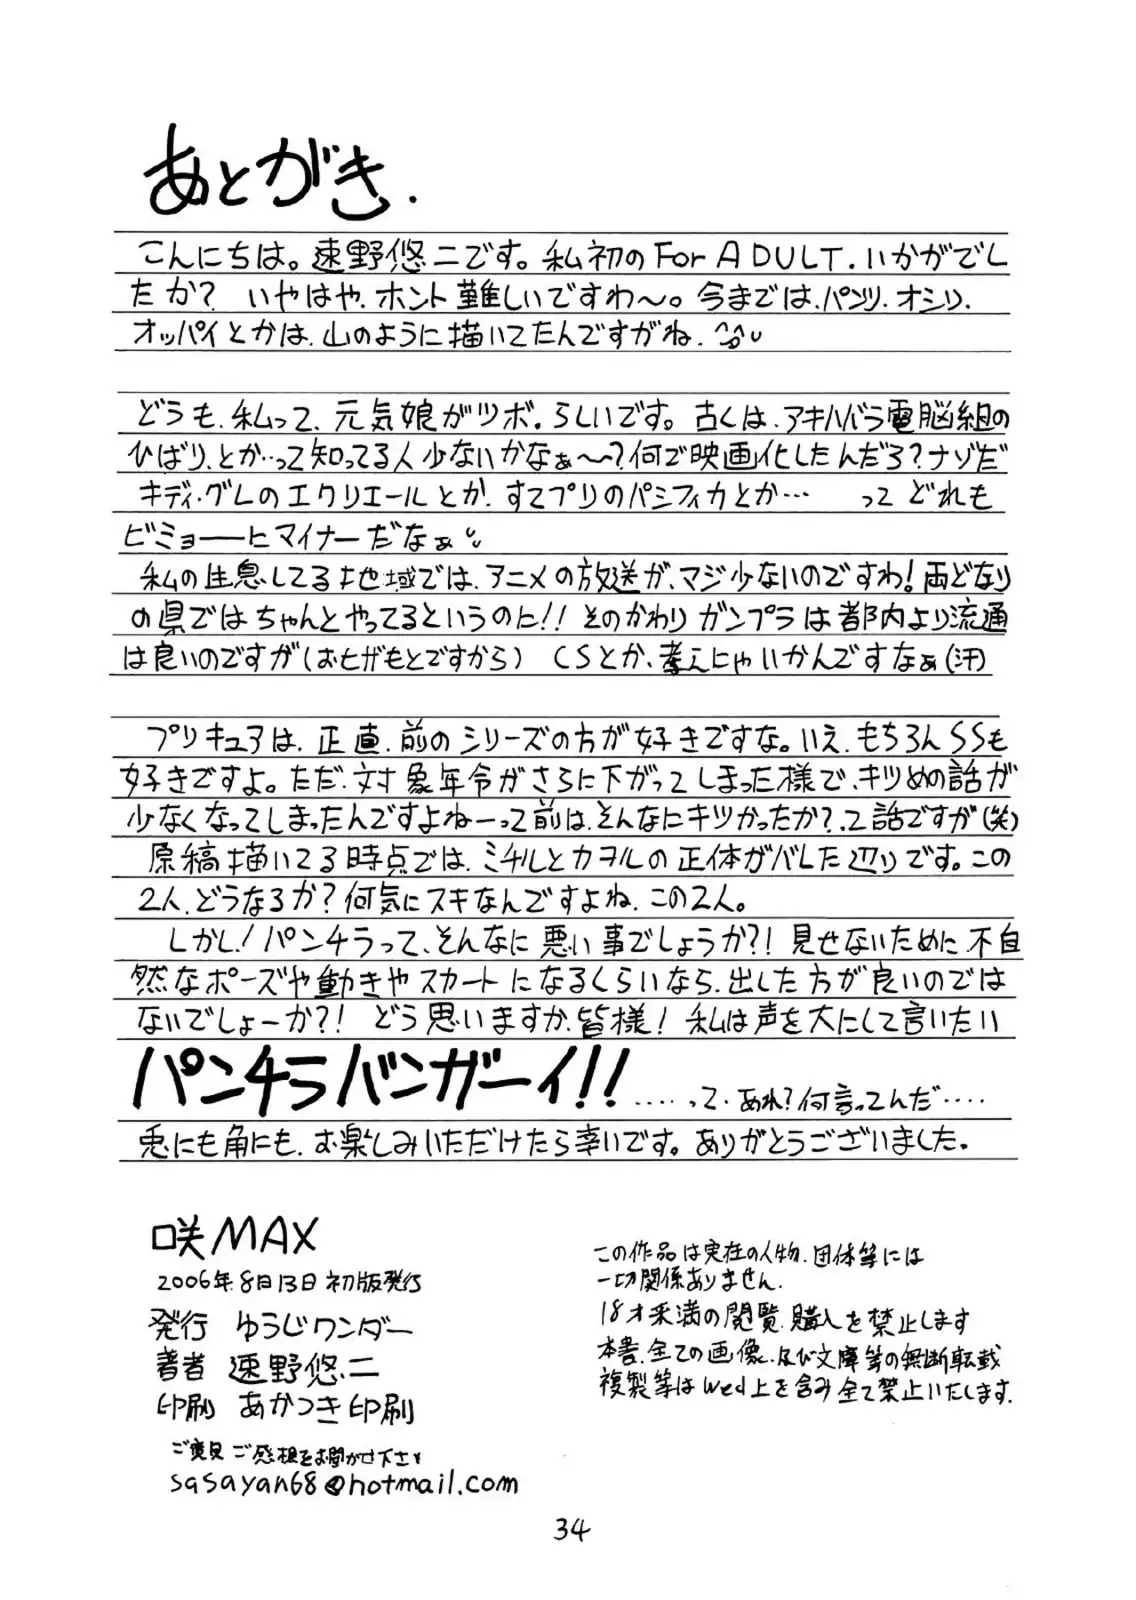 あとがき.
こんにちは。速野悠二です。私初のFor ADULT.いかがでし
たか? いやはや、ホント難しいですわ〜。今まではパンツ、オシリ、
オッパイとかは、山のように描いてたんですがね、^^;
どうも、私って、元気娘がツボ。らしいです。古くは、アキハバラ電脳組の
ひばり、とか…って知ってる人少ないかなぁ〜?何で映画化したんだろ?ナゾだ
キディ・グレのエクリエールとか、すてプリのパシフィカとか… って どれも
ビミョーにマイナーだなぁ
私の生息してる地域では、アニメの放送が、マジ少ないのですわ!両どなり
の県ではちゃんとやってるというのに!! そのかわり ガンプラは都内より流通
は良いのですが(おヒザもとですから) CSとか、考えにゃいかんですなぁ(汗)
プリキュアは、正直、前のシリーズの方が好きですな。いえ、もちろんSSも
好きですよ。ただ、対象年令がさらに下がってしまった様で、キツめの話が
少なくなってしまったんですよねーって前は、そんなにキツかったか?って話ですが(笑)
原稿描いてる時点では、ミチルとカヲルの正体がバレた辺りです。この
2人、どうなるか?何気にスキなんですよね、この2人。
しかし!パンチラって、そんなに悪い事でしょうか?!見せないために、不自
然なポーズや動きやスカートになるくらいなら、出した方が良いのでは
ないでしょーか?! どう思いますか、皆様! 私は声を大にして言いたい
パンチラバンザーイ!! ‥‥って、あれ?何言ってんだ‥‥
兎にも角にも、お楽しみいただけたら幸いです。ありがとうございました。
咲MAX
2006年8月13日初版発行
発行 ゆうじワンダー
著者 速野悠二
印刷 あかつき印刷
ご意見ご感想をお聞かせ下さい
sasayan68@hotmail.com
この作品は実在の人物、団体等には
一切関係ありません.
18才未満の閲覧、購入を禁止します
本書、全ての画像、及び文庫等の無断転載
複製等はWed上を含み全て禁止いたします.
34